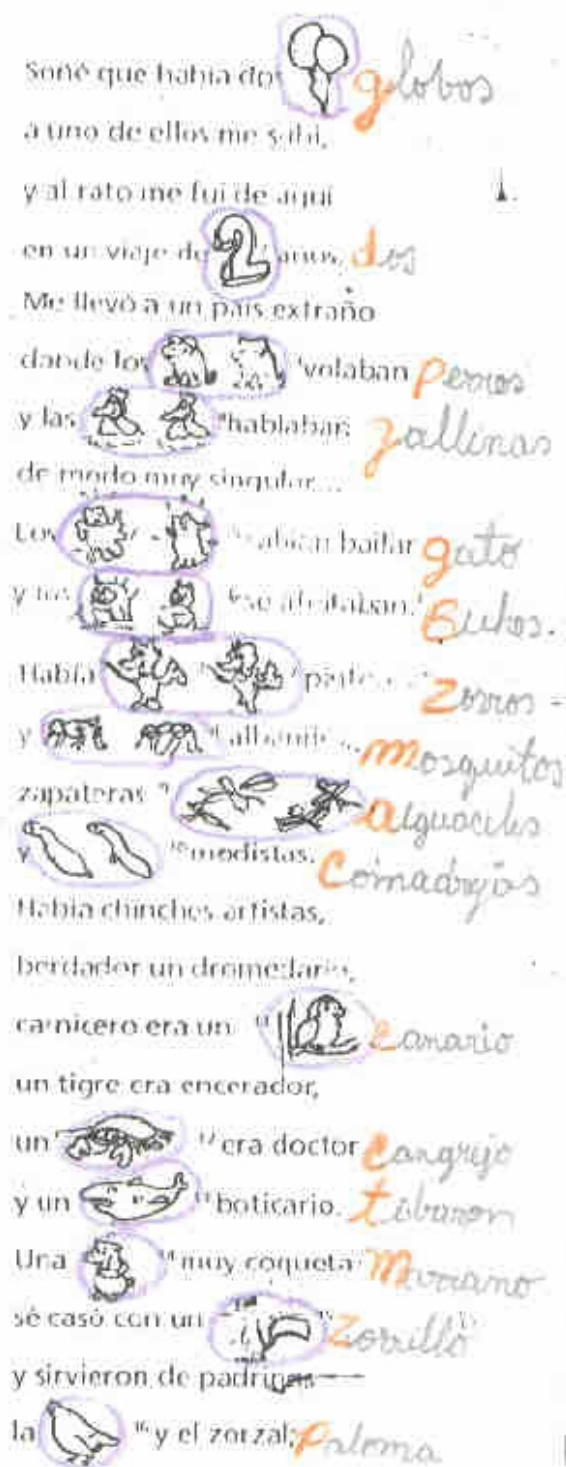 Soñé que había dos globos
a uno de ellos me subí,
y al rato me fui de aquí
en un viaje de 2 años, dos
Me llevó a un país extraño
donde los volaban perros
y las hablaban zallinas
de modo muy singular...
Los sabían bailar gato
y los se afeitaban. Buhos.
Había zorros
y albañiles mosquitos
zapateras alguaciles
y 10 modistas. Comadrejas
Había chinches artistas,
bordador un dromedario,
carnicero era un 11 canario
un tigre era encerador,
un 12 era doctor cangrejo
y un 13 boticario. tiburon
Una 14 muy coqueta
sé casó con un zorrillo
y sirvieron de padrinos
la 16 y el zorzal; paloma